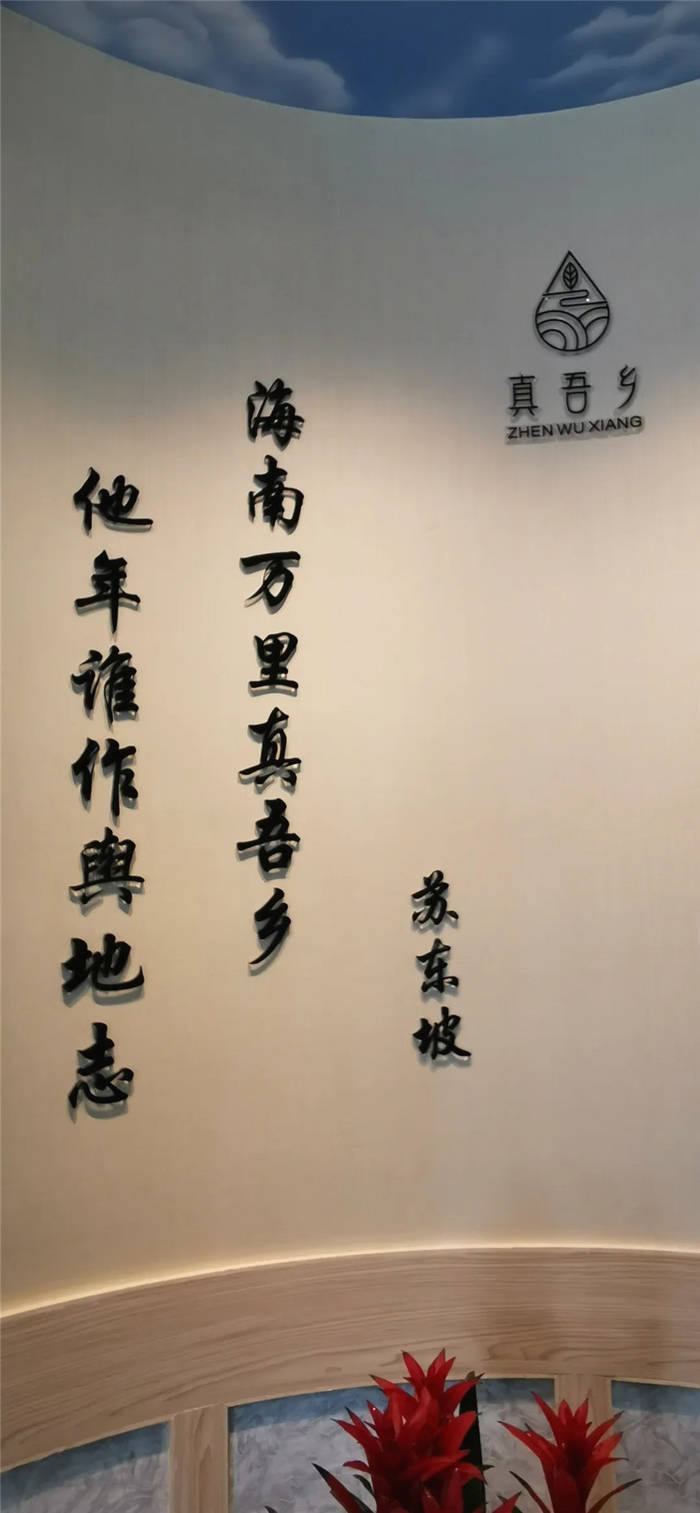 真吾乡
ZHEN WU XIANG
苏东坡
海南万里真吾乡
他年谁作舆地志